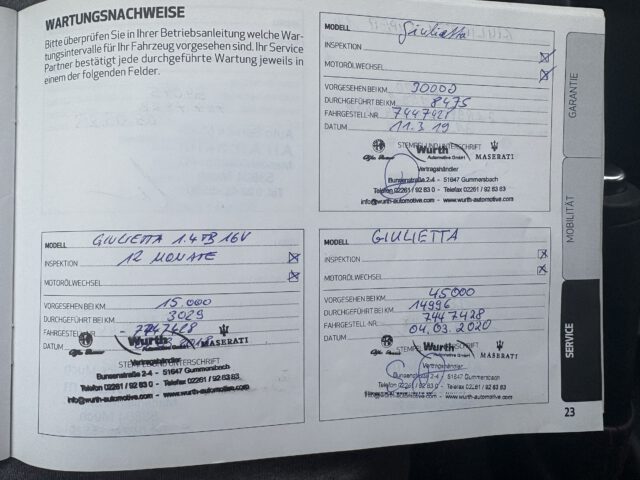 WARTUNGSNACHWEISE
Bitte überprüfen Sie in Ihrer Betriebsanleitung welche War-
tungsintervalle für Ihr Fahrzeug vorgesehen sind. Ihr Service
Partner bestätigt jede durchgeführte Wartung jeweils in
einem der folgenden Felder.
MODELL Giulietta
INSPEKTION
MOTORÖLWECHSEL
VORGESEHEN BEI KM 30000
DURCHGEFÜHRT BEI KM 8475
FAHRGESTELL-NR. 7447428
DATUM 11.3.19
STEMPEL UND UNTERSCHRIFT
Alfa Romeo Würth MASERATI
Automotive GmbH
Vertragshändler
Bunsenstraße 2-4 - 51647 Gummersbach
Telefon 02261 / 92 83 0 - Telefax 02261 / 92 83 83
info@wurth-automotive.com - www.wurth-automotive.com
MODELL GIULIETTA 1.4 TB 16V
INSPEKTION 12 MONATE
MOTORÖLWECHSEL
VORGESEHEN BEI KM 15.000
DURCHGEFÜHRT BEI KM 3029
FAHRGESTELL-NR. 7447428
DATUM
Alfa Romeo Würth MASERATI
Vertragshändler
STEMPEL UND UNTERSCHRIFT
Bunsenstraße 2-4 - 51647 Gummersbach
Telefon 02261 / 92 83 0 - Telefax 02261 / 92 83 83
info@wurth-automotive.com - www.wurth-automotive.com
MODELL GIULIETTA
INSPEKTION
MOTORÖLWECHSEL
VORGESEHEN BEI KM 45000
DURCHGEFÜHRT BEI KM 14996
FAHRGESTELL-NR. 7447428
DATUM 04.03.2020
STEMPEL UND UNTERSCHRIFT
Alfa Romeo Würth MASERATI
Automotive GmbH
Vertragshändler
Bunsenstraße 2-4 - 51647 Gummersbach
Telefon 02261 / 92 83 0 - Telefax 02261 / 92 83 83
www.wurth-automotive.com
GARANTIE
MOBILITÄT
SERVICE
23